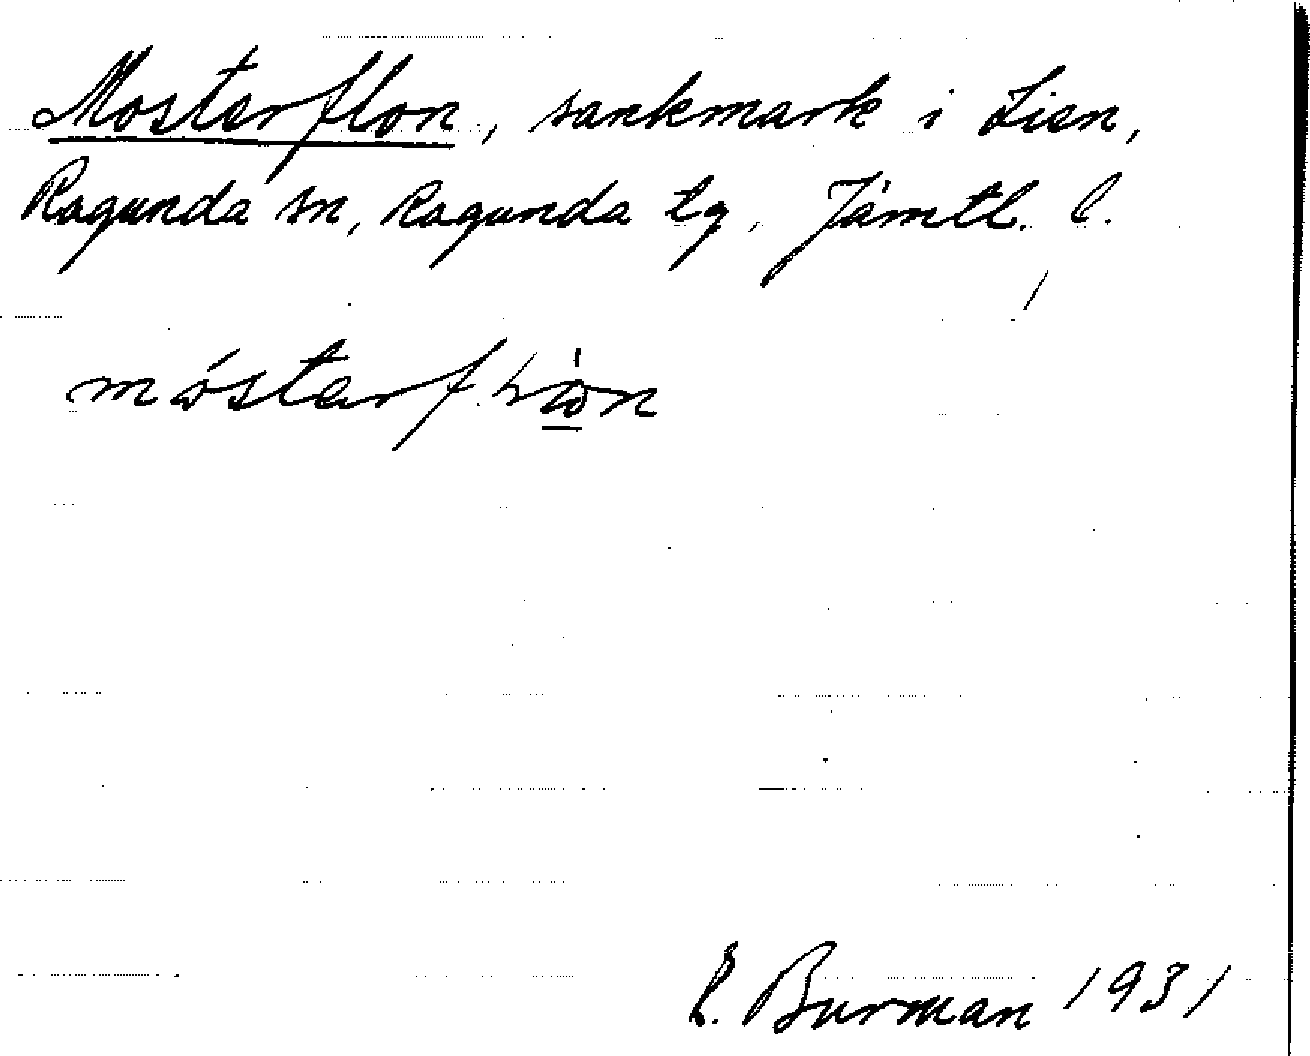 Mosterflon, sankmark i Lien,
Ragunda sn, Ragunda tg, Jämtl. l.
E. Burman 1931